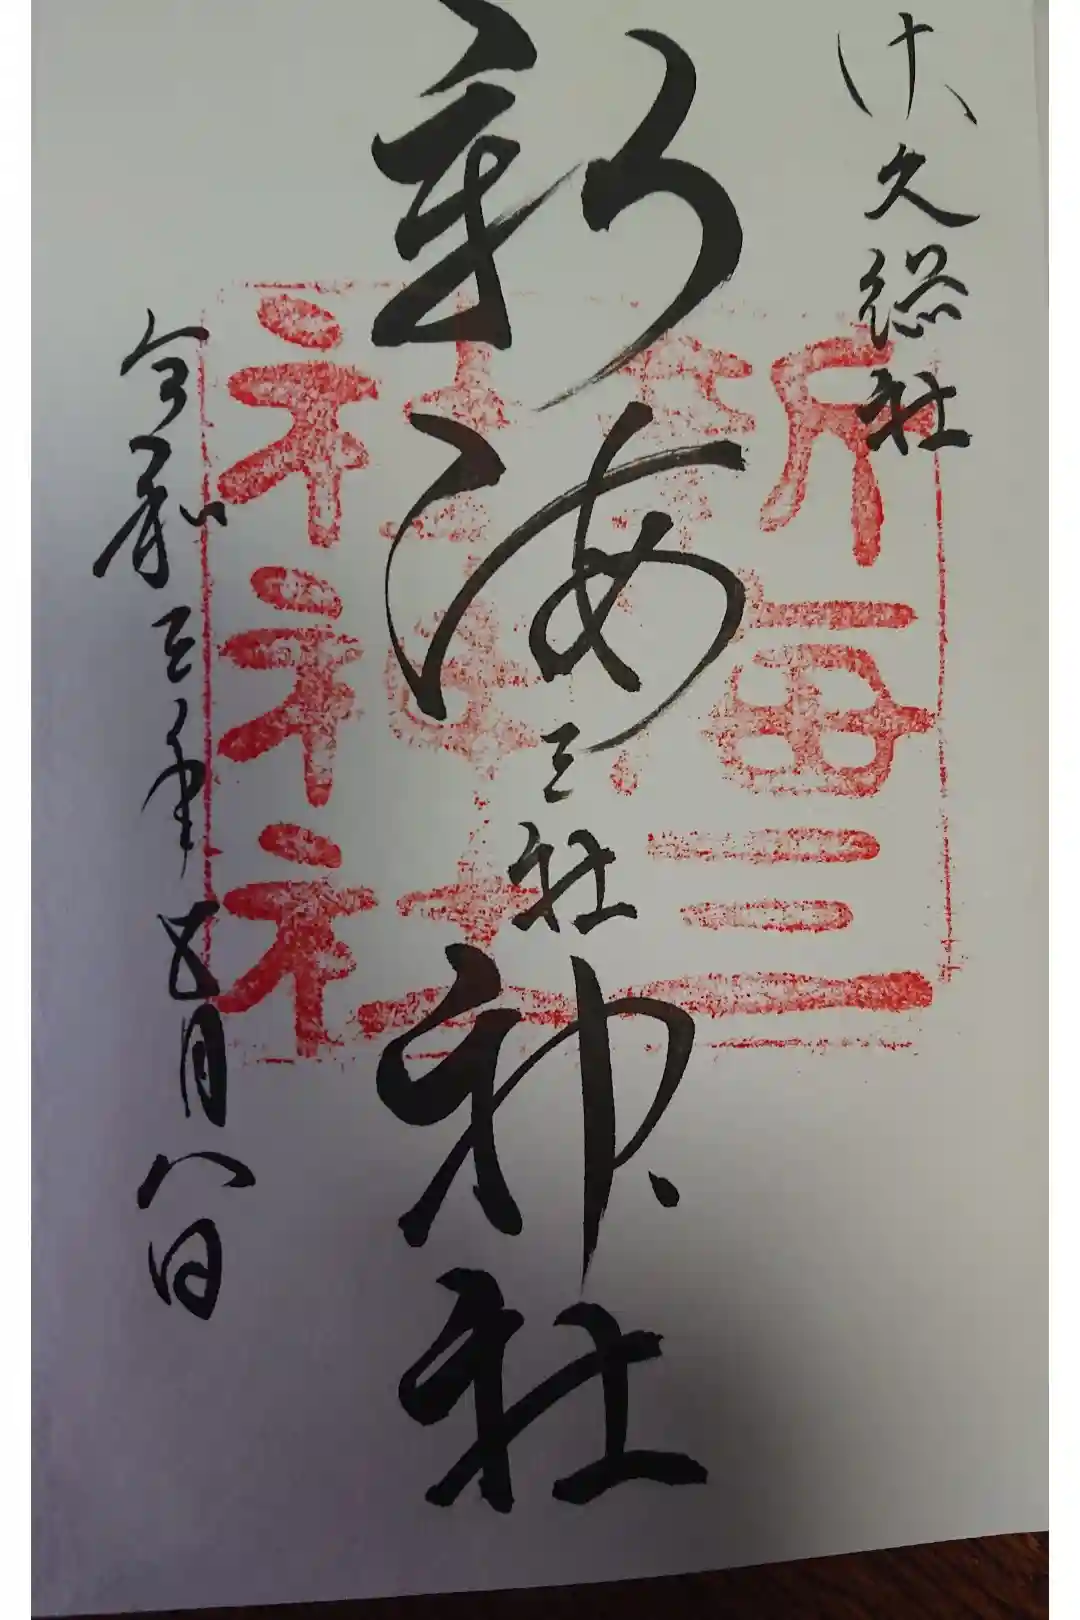 佐久総社
新海三社神社
令和三年五月八日
新海三
社神社